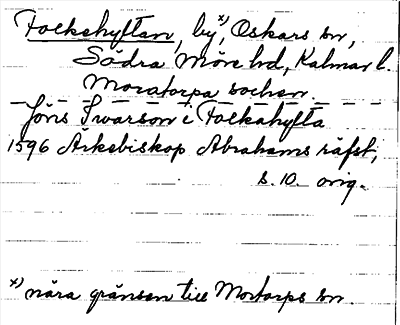 Folkahyttan, by x), Oskars sn,
Södra Möre hd, Kalmar l.
Moratorpa sochen.
Jöns Swarson i Folkahytta
1596 Ärkebiskop Abrahams räfst,
s. 10. orig.
x) nära gränsen till Mortorps sn.